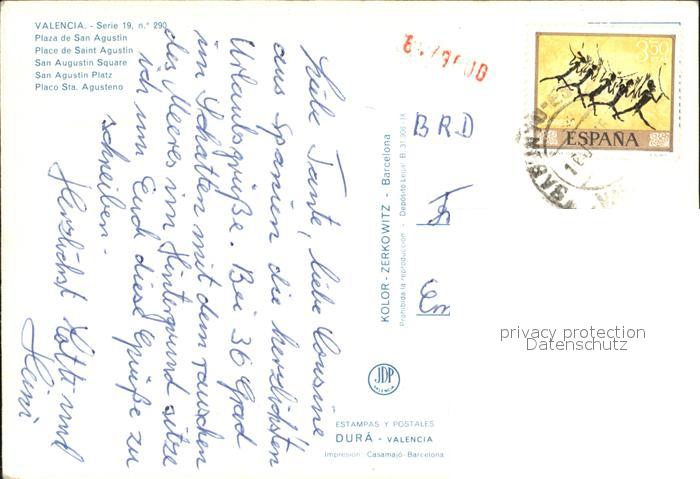 VALENCIA. - Serie 19, n.° 290
Plaza de San Agustin
Place de Saint Agustin
San Augustin Square
San Agustin Platz
Placo Sta. Agusteno
Liebe Tante, liebe Cousine
aus Spanien die herzlichsten
Urlaubsgrüße. Bei 36 Grad
im Schatten mit dem rauschen
des Meeres im Hintergrund sitze
ich um Euch diese Grüße zu
schreiben.
Herzlichst Lotti und
Heini
KOLOR - ZERKOWITZ - Barcelona
Prohibida la reproducción - Depósito Legal B. 31
JDP
VALENCIA
ESTAMPAS Y POSTALES
DURÁ - VALENCIA
Impresion: Casamajó-Barcelona
BRD
3,50
PTA
ESPAÑA
privacy protection
Datenschutz